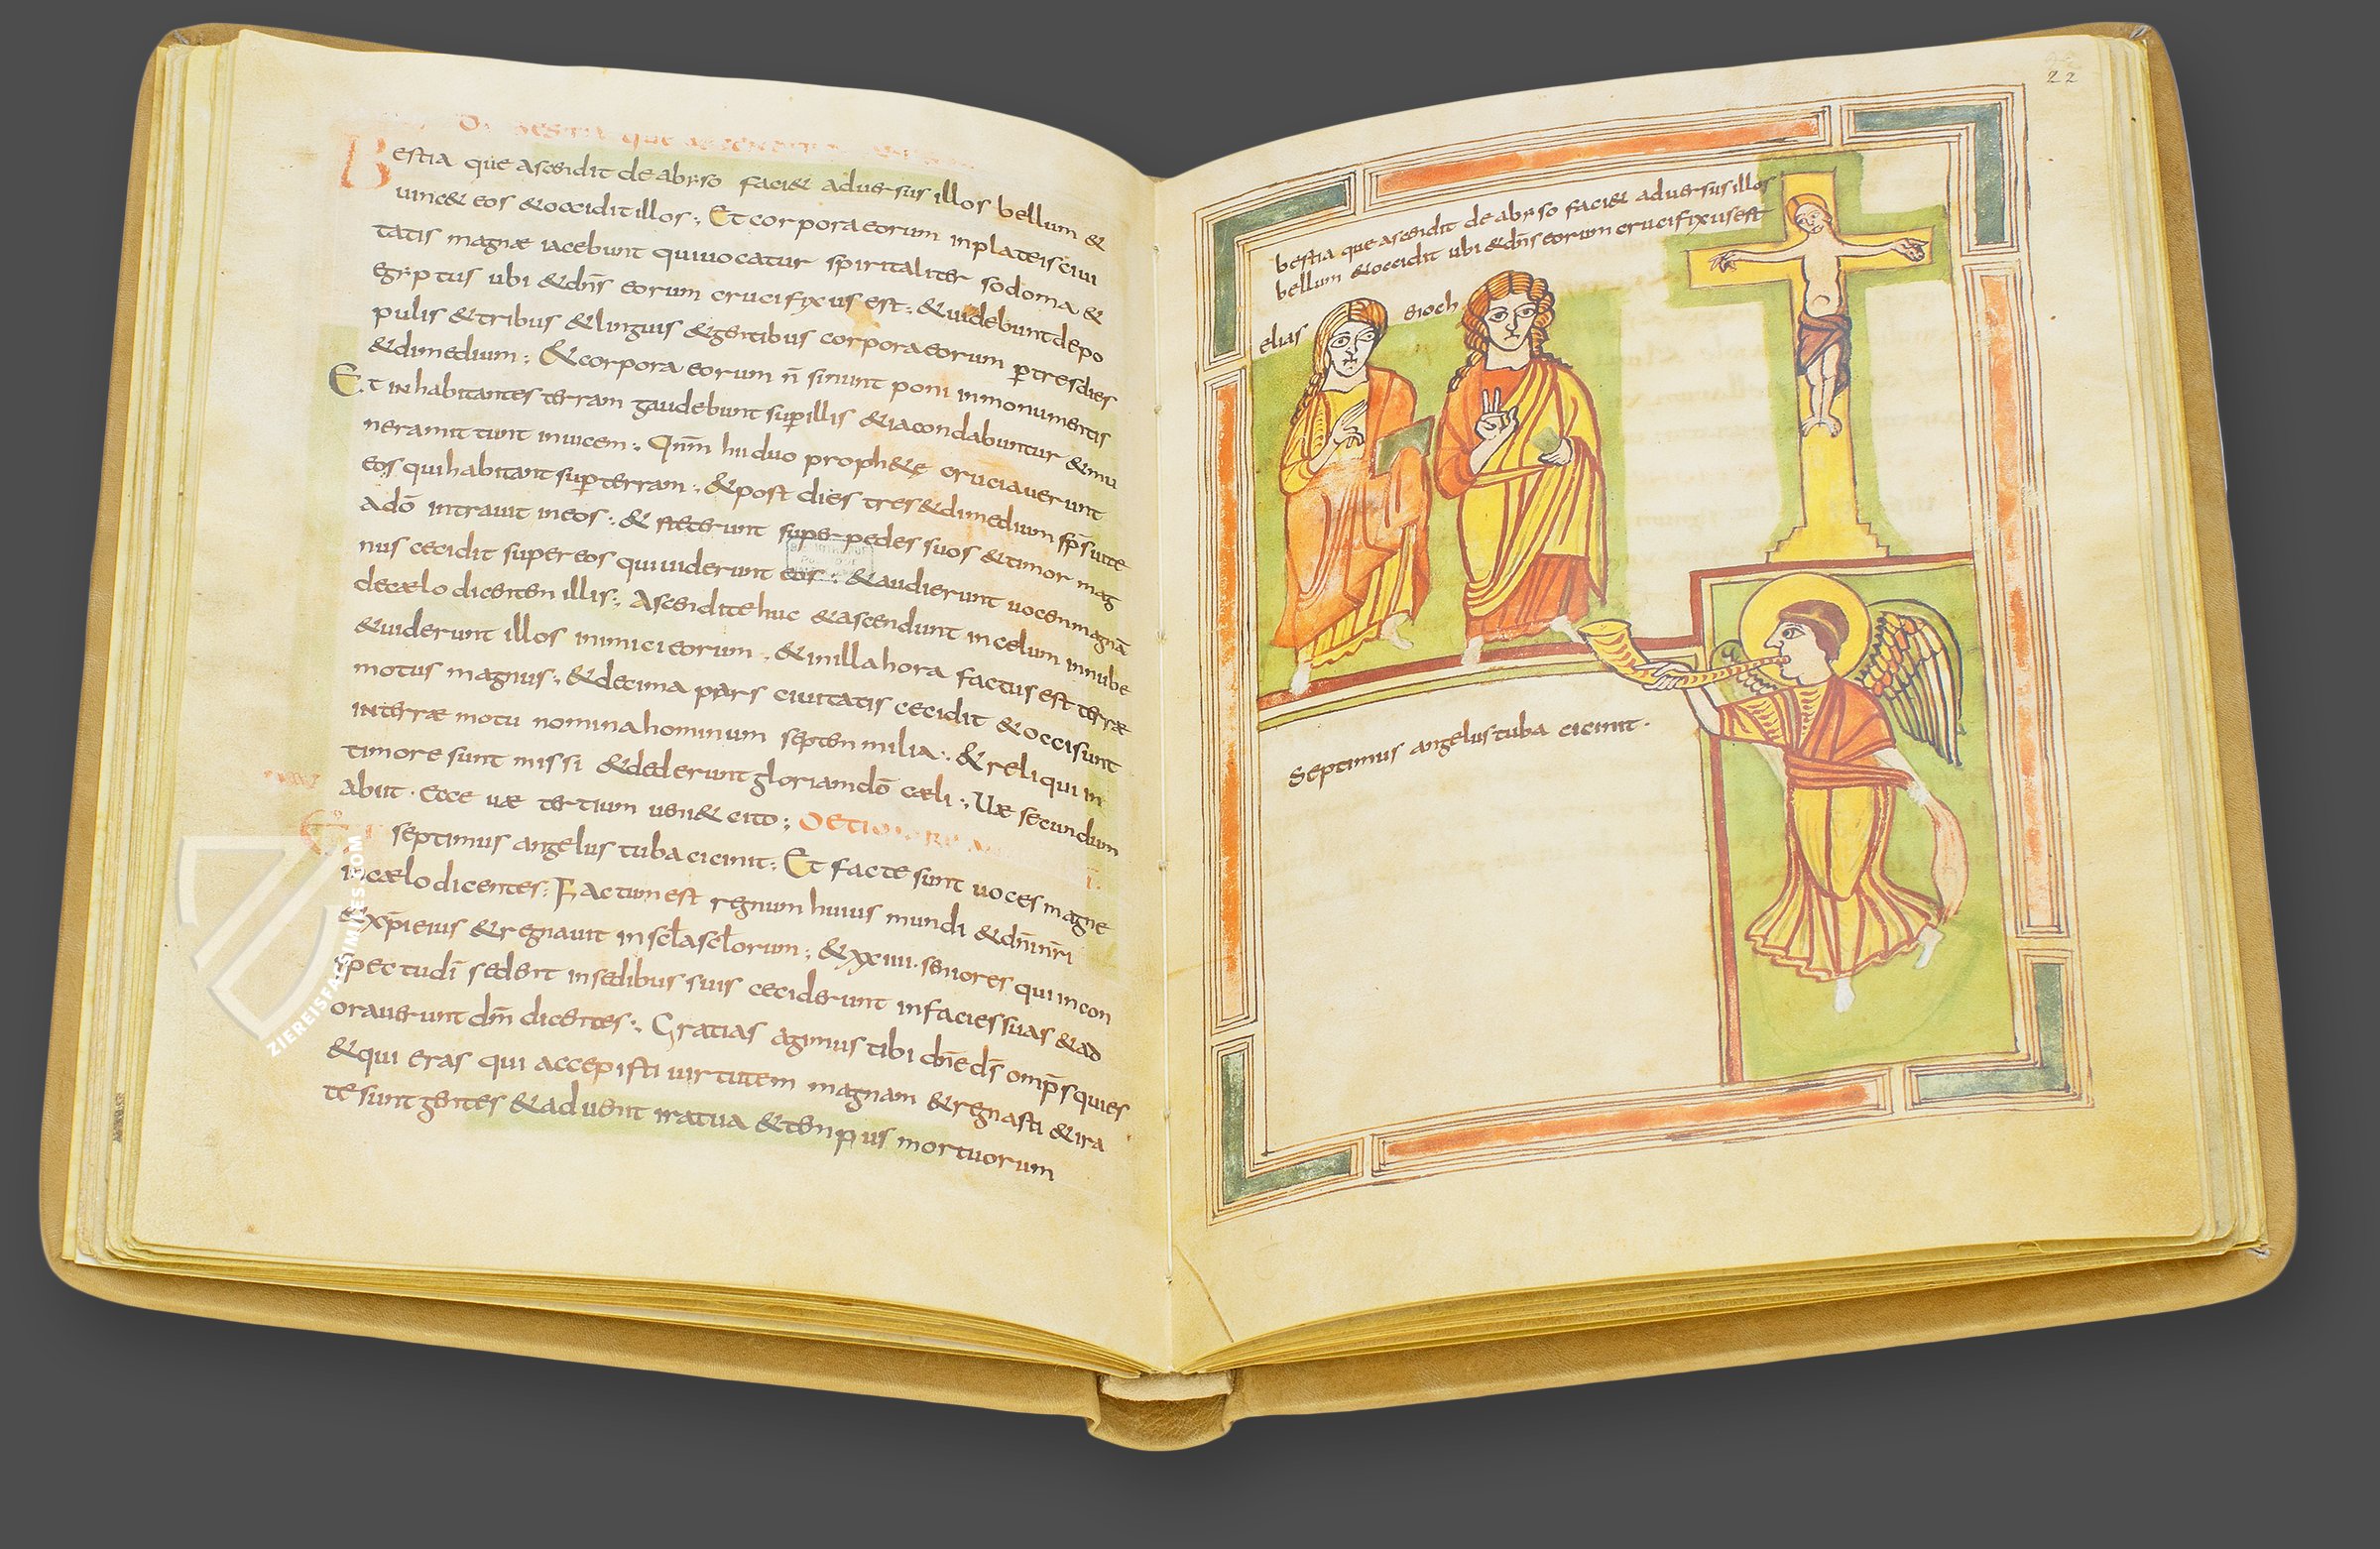 Bestia que ascendit de abyso faci& aduersus illos bellum &
uinc& eos &occidit illos; Et corpora eorum inplateis ciui
tatis magnæ iacebunt qui uocatur spiritaliter sodoma &
egyptus ubi &dn̄s eorum crucifixus est; &uidebunt depo
pulis &tribus &linguis &gentibus corpora eorum ꝑ tres dies
&dimedium; &corpora eorum n̄ sinunt poni inmonumentis
Et inhabitantes terram gaudebunt suꝑ illis &iacondabuntur &mu
nera mittunt inuicem; Qnm̄ hii duo proph&ę cruciauerunt
eos qui habitant suꝑ terram; &post dies tres &dimedium sp̄s uite
ado̅ intrauit ineos; & steterunt super pedes suos &timor mag
nus cecidit super eos qui uiderunt eos; &audierunt uocem magnā
decælo dicenten illis; Ascendite huc &ascendunt incelum innube
&uiderunt illos inimici eorum; &inilla hora factus est terræ
motus magnus; &decima pars ciuitatis cecidit &occisi sunt
interræ motu nomina hominum septen milia; &reliqui in
timore sunt missi &dederunt gloriam do̅ cæli; Uæ secundum
abiit. Ecce uæ tertium ueni& cito;
septimus angelus tuba cicinit; Et facte sunt uoces magne
incælo dicentes; Factum est regnum huius mundi &dn̄i nr̄i
&xp̄i eius &regnauit in scl̄a scl̄orum; &xxiiii. seniores qui incon
spectu dī sedent insedibus suis ceciderunt infacies suas &ad
orauerunt dm̄ dicentes; Gratias agimus tibi dn̄e ds̄ omp̄s qui es
&qui eras qui accepisti uirtutem magnam &regnasti &ira
te sunt gentes &aduenit ira tua &tenpus mortuorum
22
bestia que ascendit de abyso faci& aduersus illos
bellum &occidit ubi &dn̄s eorum crucifixus est
elias
enoch
Septimus angelus tuba cicinit.
ZIEREISFACSIMILES.COM